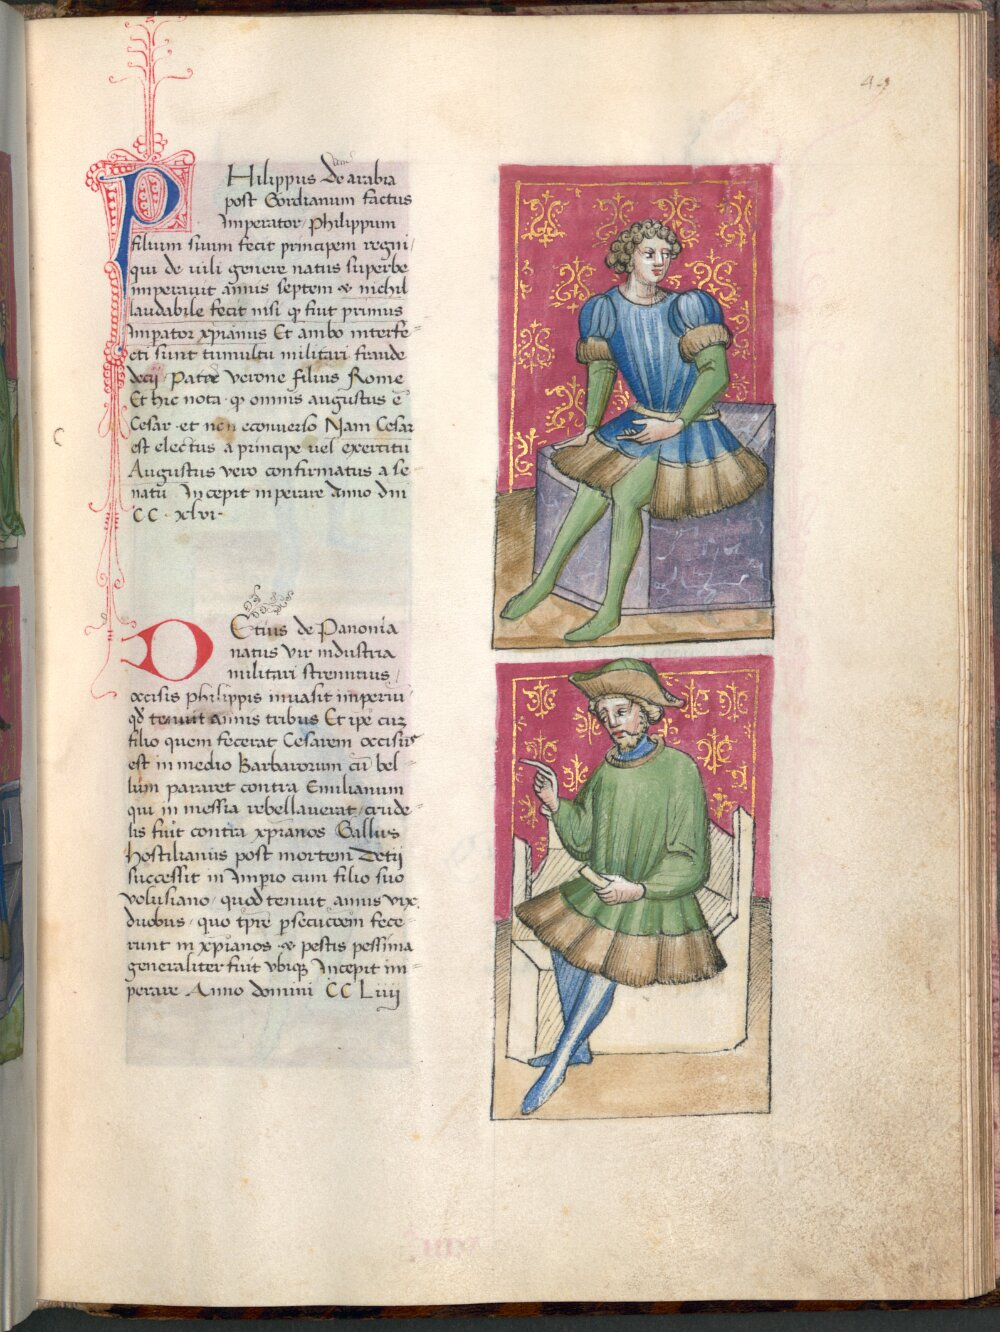 44
PHilippus de arabia
post Gordianum factus
Imperator Philippum
filium suum fecit principem regni
qui de uili genere natus superbe
imperauit annis septem & nichil
laudabile fecit nisi q fuit primus
Impator xpianus Et ambo interfe=
cti sunt tumultu militari fraude
decij Pater verone filius Rome
Et hic nota q omnis augustus ē
Cesar et non econuerso Nam Cesar
est electus a principe uel exercitu
Augustus vero confirmatus a se=
natu Incepit inperare Anno dni
CC xlvi
DEtius de Panonia
natus vir industria
militari strennuus
occisis philippis inuasit imperiū
qd tenuit annis tribus Et ipe cuz
filio quem fecerat Cesarem occisus
est in medio Barbarorum cū bel=
lum pararet contra Emilianum
qui in messia rebellauerat crude=
lis fuit contra xpianos Gallus
Hostilianus post mortem Detij
successit in Impio cum filio suo
volusiano quod tenuit annis vix
duobus quo tpre psecucoem fece=
runt in xpianos & pestis pessima
generaliter fuit vbiq Incepit im=
perare Anno domini CC Liiij